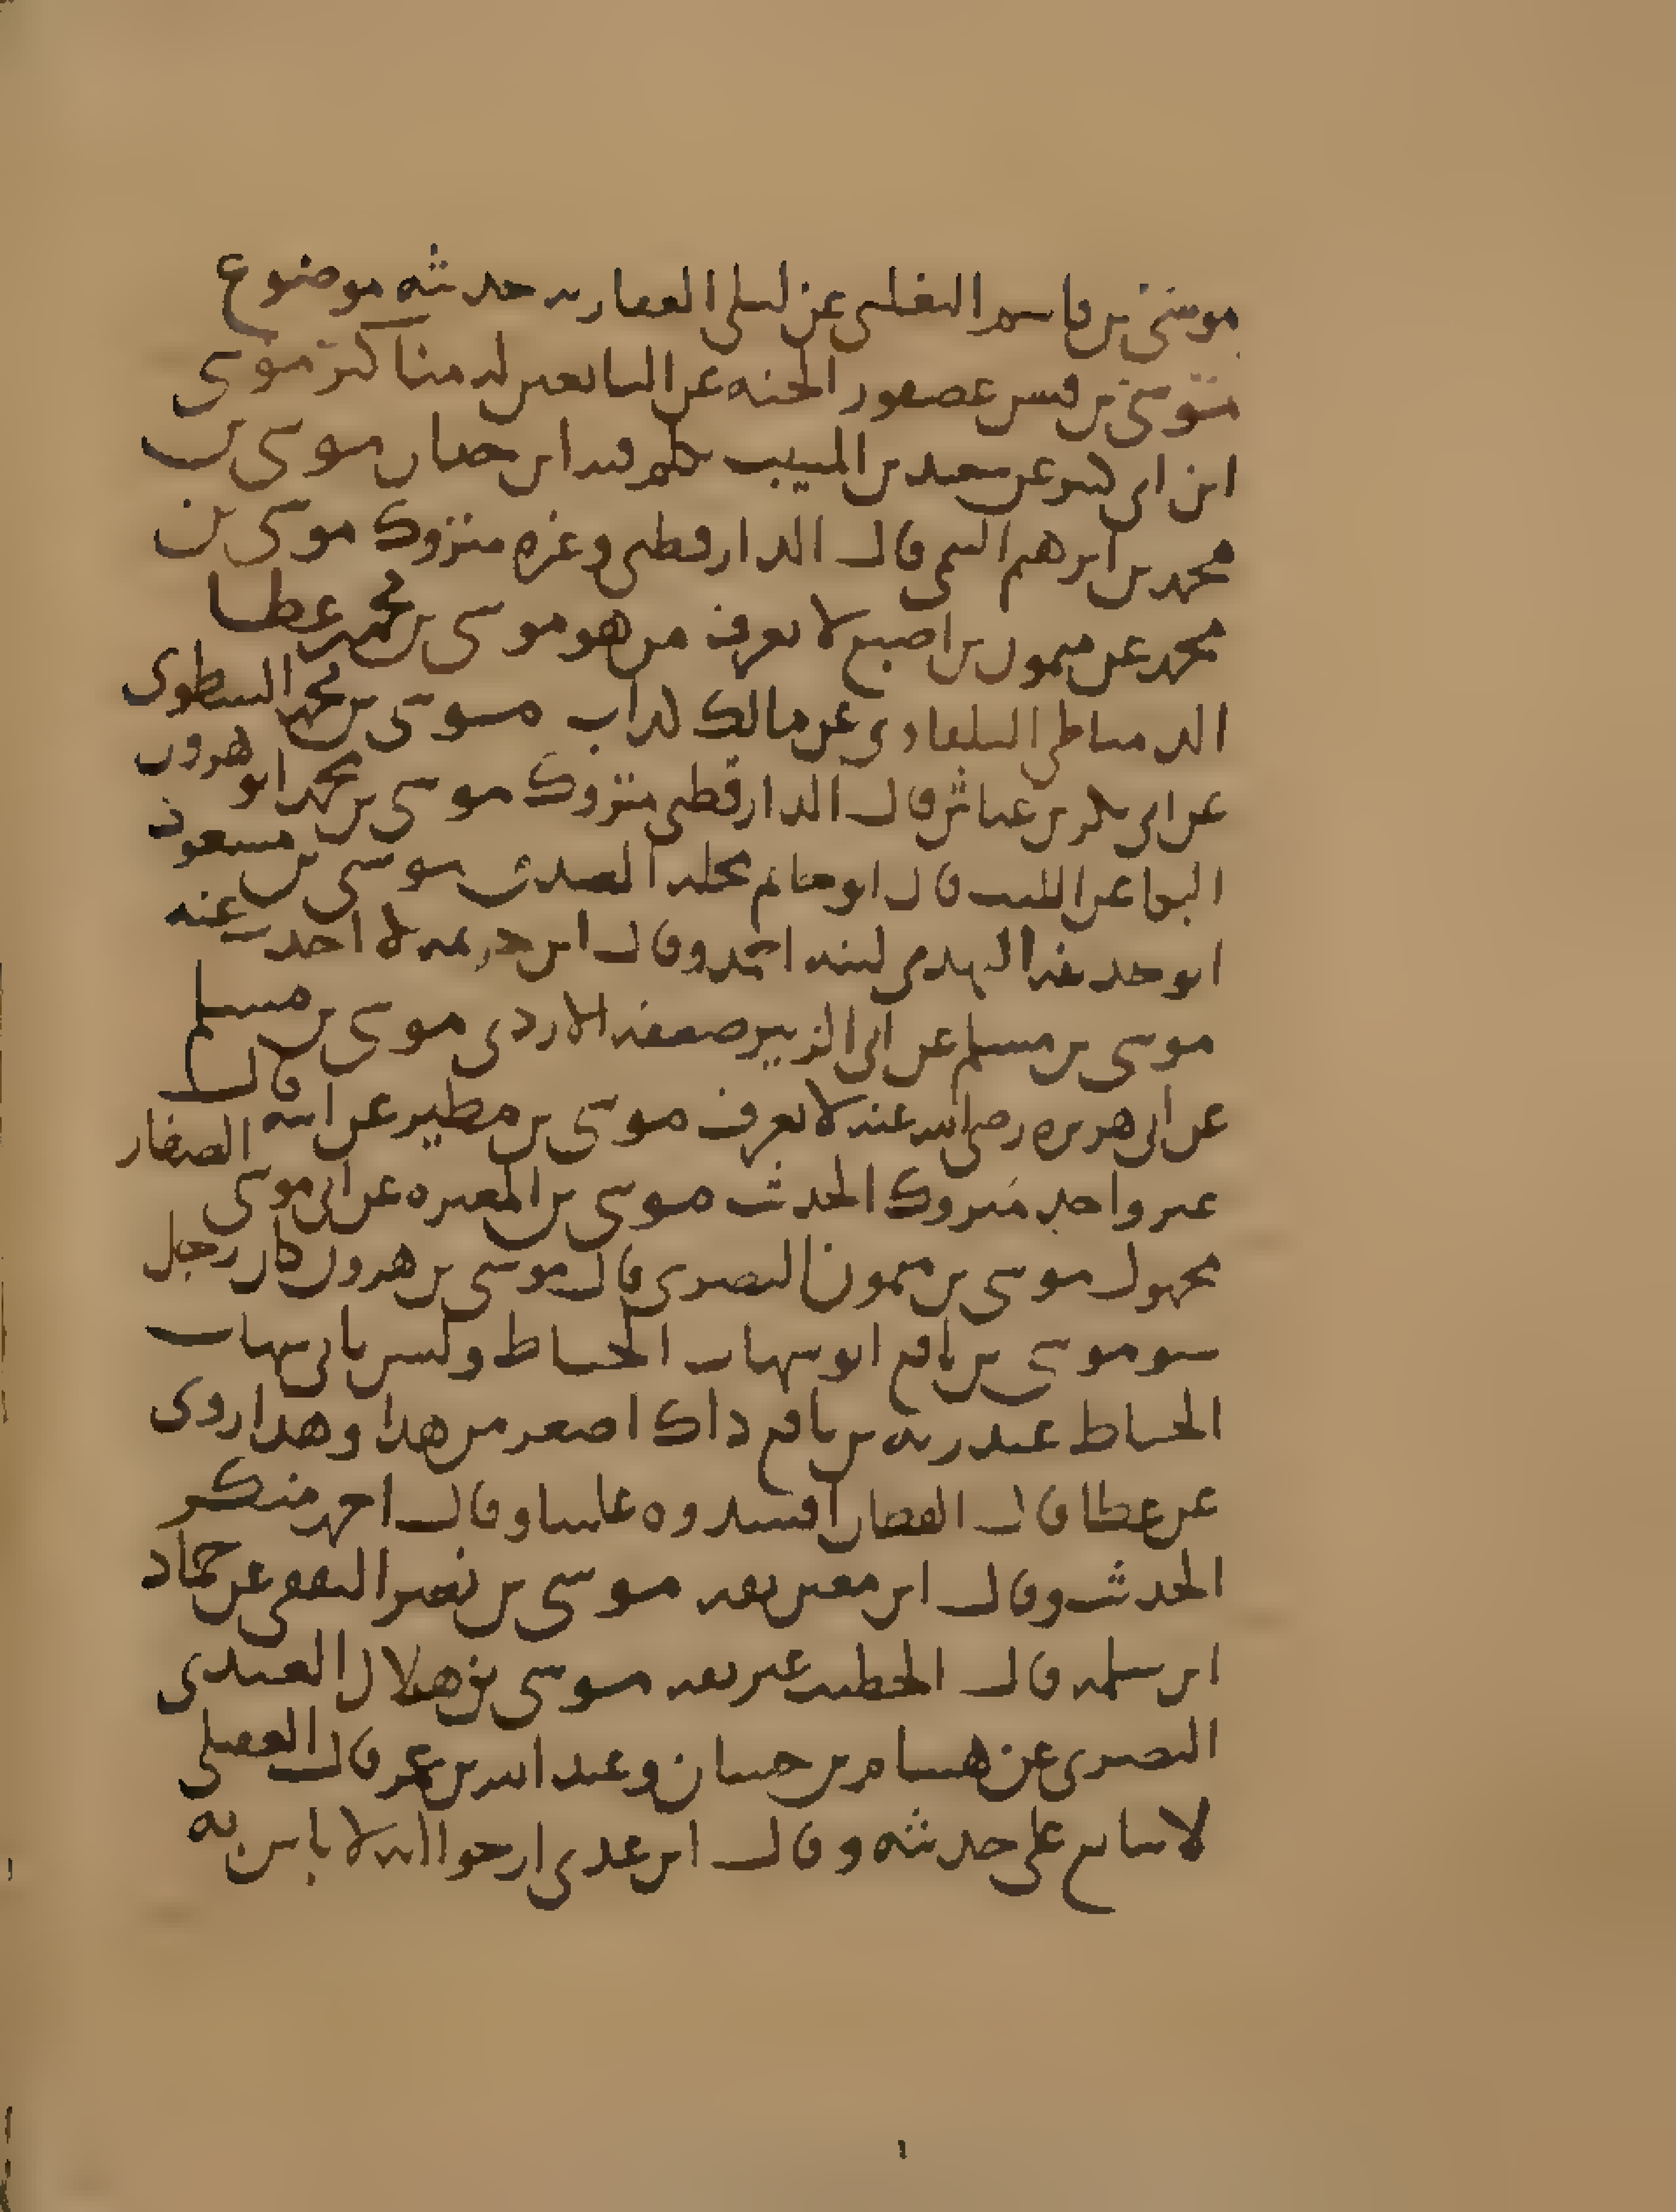 موسى بن قاسم التغلبي عن ليلى الغفاريه حديثه موضوع
موسى بن قيس عصفور الجنه عن التابعين له مناكير موسى
ابن ابي كثير عن سعيد بن المسيب تكلم فيه ابن حبان موسى بن
محمد بن ابرهيم التيمي قال الدارقطني وغيره متروك موسى بن
محمد عن ميمون بن اصبغ لا يعرف من هو موسى بن محمد بن عطا
الدمياطي البلقاوي عن مالك كذاب موسى بن محمد الشطوي
عن ابي بكر بن عياش قال الدارقطني متروك موسى بن محمد ابو هرون
البكا عن الليث قال ابو حاتم محله الصدق موسى بن مسعود
ابو حذيفه النهدي لينه احمد وقال ابن خزيمه لا احدث عنه
موسى بن مسلم عن ابي الزبير ضعفه الازدي موسى بن مسلم
عن ابي هريره رضي الله عنه لا يعرف موسى بن مطير عن ابيه قال
غير واحد متروك الحديث موسى بن المغيره عن ابي موسى الصفار
مجهول موسى بن ميمون البصري قال موسى بن هرون كان رجل
سو موسى بن نافع ابو شهاب الحناط وليس بابي شهاب
الحناط عبد ربه بن نافع ذاك اصغر من هذا وهذا روى
عن عطا قال القطان افسدوه علينا وقال احمد منكر
الحديث وقال ابن معين ثقه موسى بن نصر الثقفي عن حماد
ابن سلمه قال الخطيب غير ثقه موسى بن هلال العبدي
البصري عن هشام بن حسان وعبد الله بن عمر قال العقيلي
لا يتابع على حديثه وقال ابن عدي ارجو انه لا باس به